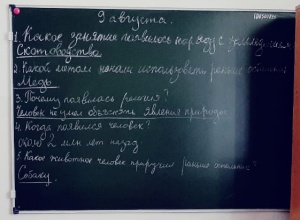 9 августа.
1. Какое занятие появилось наряду с земледелием
Скотоводство
2. Какой металл начали использовать раньше остальных
Медь
3. Почему появилась религия?
Человек не умел объяснять явления природы
4. Когда появился человек?
около 2 млн лет назад
5. Какое животное человек приручил раньше остальных?
Собаку